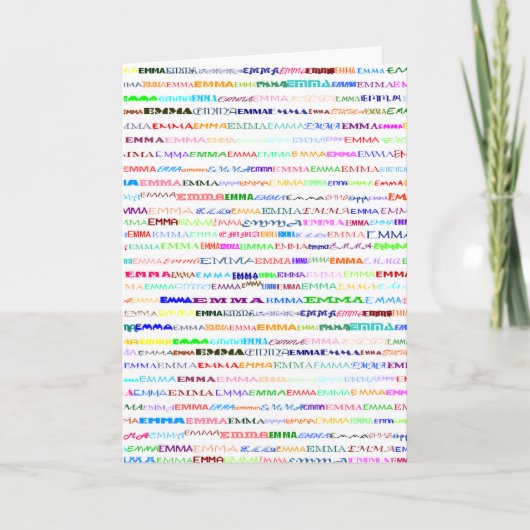 EMMA EMMA EMMA EMMA EMMA EMMA EMMA EMMA
EMMA EMMA EMMA EMMA EMMA EMMA EMMA
EMMA EMMA EMMA EMMA EMMA EMMA EMMA
EMMA EMMA EMMA EMMA EMMA EMMA EMMA
EMMA EMMA EMMA EMMA EMMA EMMA EMMA
EMMA EMMA EMMA EMMA EMMA EMMA EMMA
EMMA EMMA EMMA EMMA EMMA EMMA EMMA
EMMA EMMA EMMA EMMA EMMA EMMA EMMA
EMMA EMMA EMMA EMMA EMMA EMMA EMMA
EMMA EMMA EMMA EMMA EMMA EMMA EMMA
EMMA EMMA EMMA EMMA EMMA EMMA EMMA
EMMA EMMA EMMA EMMA EMMA EMMA EMMA
EMMA EMMA EMMA EMMA EMMA EMMA EMMA
EMMA EMMA EMMA EMMA EMMA EMMA EMMA
EMMA EMMA EMMA EMMA EMMA EMMA
EMMA EMMA EMMA EMMA EMMA EMMA
EMMA EMMA EMMA EMMA EMMA EMMA EMMA
EMMA EMMA EMMA EMMA EMMA
EMMA EMMA EMMA EMMA EMMA EMMA EMMA EMMA
EMMA EMMA EMMA EMMA EMMA EMMA EMMA
EMMA EMMA EMMA EMMA EMMA EMMA EMMA
EMMA EMMA EMMA EMMA EMMA EMMA
EMMA EMMA EMMA EMMA EMMA EMMA EMMA
EMMA EMMA EMMA EMMA EMMA EMMA EMMA
EMMA EMMA EMMA EMMA EMMA EMMA EMMA
EMMA EMMA EMMA EMMA EMMA EMMA
EMMA EMMA EMMA EMMA EMMA EMMA EMMA
EMMA EMMA EMMA EMMA EMMA EMMA EMMA
EMMA EMMA EMMA EMMA EMMA EMMA EMMA